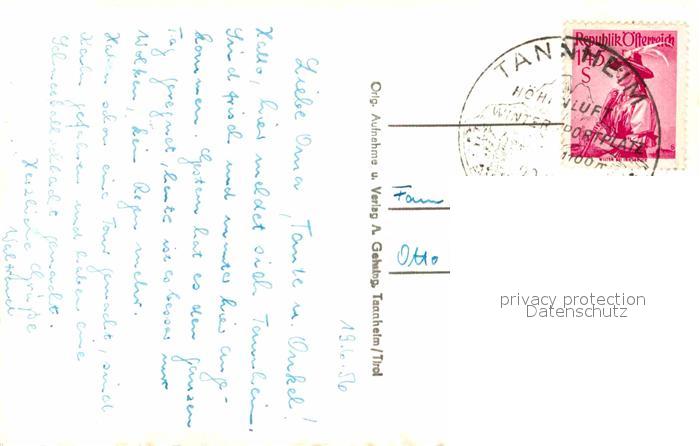 13.6.56
Liebe Oma, Tante u. Onkel!
Hallo, hier meldet sich Tannheim.
Sind frisch und munter hier ange-
kommen. Gestern hat es den ganzen
Tag geregnet, heute ist es besser nur
Wolken, kein Regen mehr.
Haben schon eine Tour gemacht, sind
gefahren und haben eine
Schneeballschlacht gemacht.
Herzliche Grüße
Waltraud
Orig. Aufnahme u. Verlag A. Gehring, Tannheim/Tirol
Republik Österreich
S
TANNHEIM
HÖHENLUFT
WINTERSPORTPLATZ
1100 m
Fam
Otto
privacy protection
Datenschutz